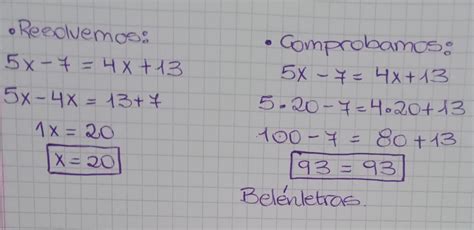 • Resolvemos:
5x - 7 = 4x + 13
5x - 4x = 13 + 7
1x = 20
x = 20
• Comprobamos:
5x - 7 = 4x + 13
5 • 20 - 7 = 4 • 20 + 13
100 - 7 = 80 + 13
93 = 93
Belénletras.